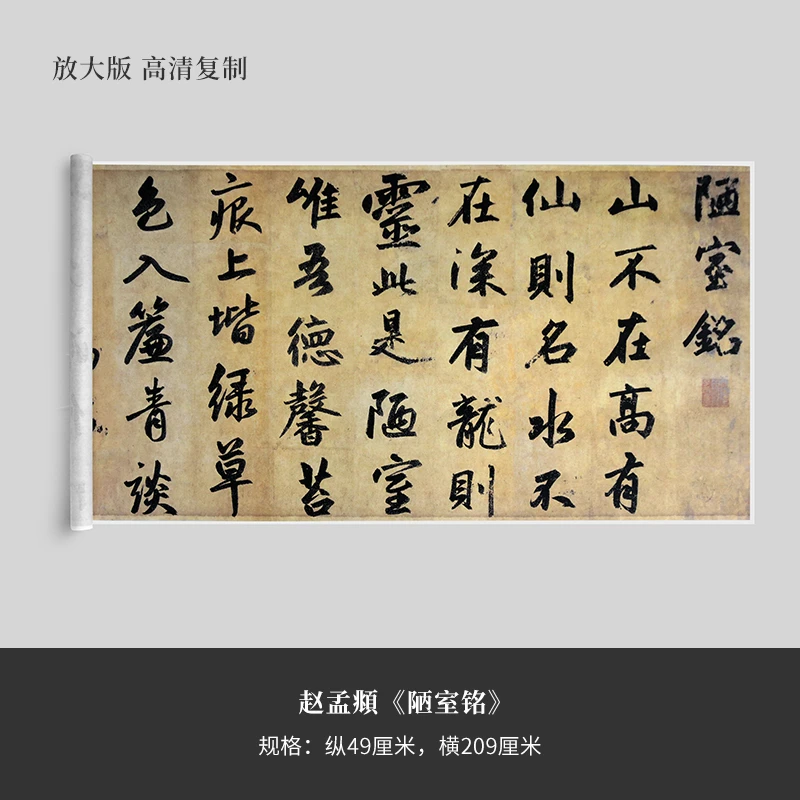 放大版 高清复制
陋室銘
山不在高有
仙則名水不
在深有龍則
靈此是陋室
惟吾德馨苔
痕上堦緑草
色入簾青談
赵孟頫《陋室铭》
规格：纵49厘米，横209厘米